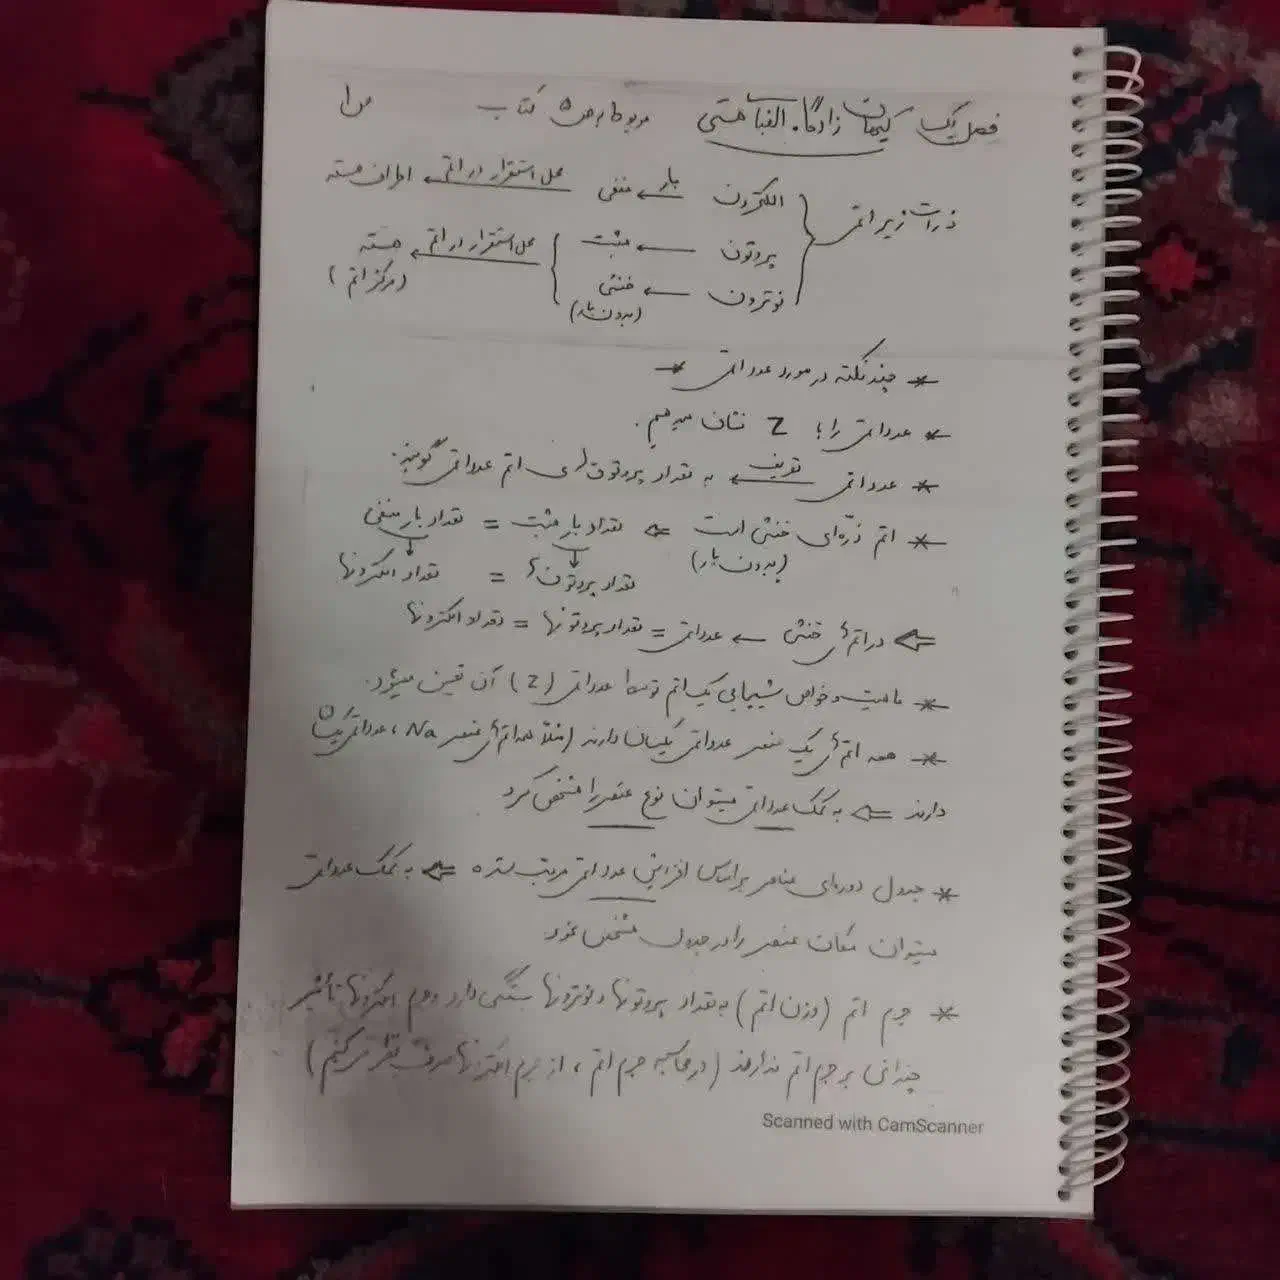 فصل یک کیهان زادگاه الفبای هستی مربوط به ص ۵ کتاب ص۱
ذرات زیر اتمی
الکترون ← بار منفی ← محل استقرار در اتم اطراف هسته
پروتون ← مثبت
نوترون ← خنثی (بدون بار)
محل استقرار در اتم ← هسته (مرکز اتم)
* چند نکته در مورد عدد اتمی *
* عدد اتمی را با Z نشان میدهیم.
* عدد اتمی تعریف ← به تعداد پروتون های اتم عدد اتمی گویند.
* اتم ذرّه‌ای خنثی است ⇐ تعداد بار مثبت = تعداد بار منفی
(بدون بار) تعداد پروتون ها = تعداد الکترونها
⇐ در اتم های خنثی ← عدد اتمی = تعداد پروتونها = تعداد الکترونها
* ماهیت و خواص شیمیایی یک اتم توسط عدد اتمی (Z) آن تعیین میشود.
* همه اتم های یک عنصر عدد اتمی یکسان دارند (مثلاً همه اتم های عنصر Na، عدد اتمی یکسان
دارند ⇐ به کمک عدد اتمی میتوان نوع عنصر را مشخص کرد
* جدول دوره‌ای عناصر بر اساس افزایش عدد اتمی مرتب شده ⇐ به کمک عدد اتمی
میتوان مکان عنصر را در جدول مشخص نمود
* جرم اتم (وزن اتم) به تعداد پروتونها و نوترونها بستگی دارد و جرم الکترونها تأثیر
چندانی بر جرم اتم ندارند (در محاسبه جرم اتم، از جرم الکترونها صرف نظر می کنیم)
Scanned with CamScanner